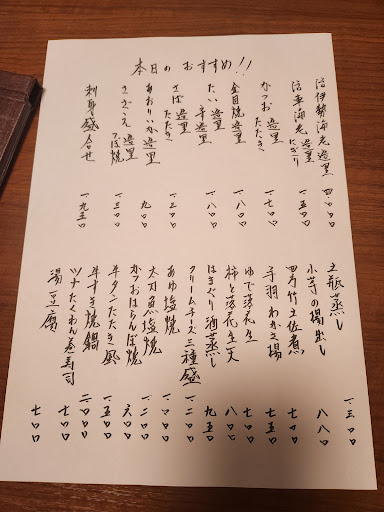 本日のおすすめ!!
活伊勢海老 造里 四、〇〇〇
活車海老 造里 にぎり 一五〇〇
かつお 造里 たたき 一七〇〇
金目焼造里 一八〇〇
たい 造里 一八〇〇
さば 造里 たたき 一二〇〇
あおりいか造里 九〇〇
さざえ 造里 つぼ焼 一三〇〇
刺身盛合せ 一九五〇
土瓶蒸し 一三〇〇
小芋の揚出し 八八〇
四方竹土佐煮 七〇〇
手羽 揚 七五〇
ゆで落花生 七〇〇
柿と落花生天 八〇〇
はまぐり酒蒸し 九五〇
クリームチーズ三種盛 一二〇〇
あゆ塩焼 一二〇〇
太刀魚塩焼 一二〇〇
かつおはらんぼ焼 六〇〇
牛タンたたき風 一五〇〇
牛すき焼鍋 二〇〇〇
ツナたくわん巻寿司 七〇〇
湯豆腐 七〇〇